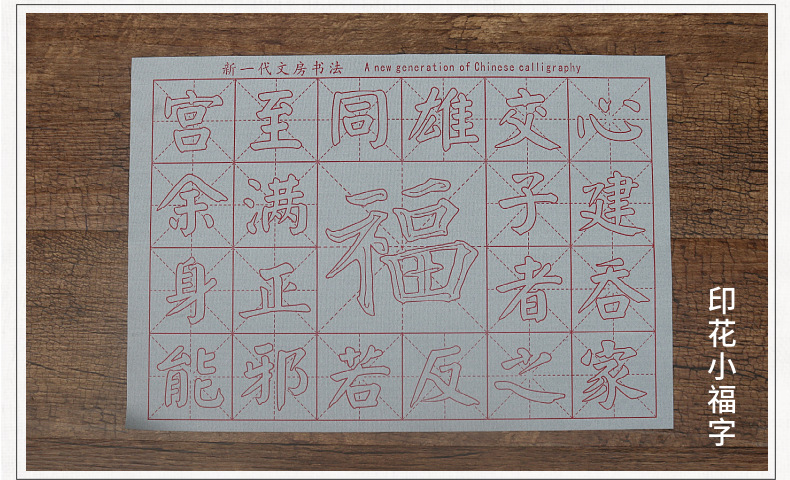 新一代文房书法 A new generation of Chinese calligraphy
宫至同雄交心
余满福子建
身正者吞
能邪若反之家
印花小福字